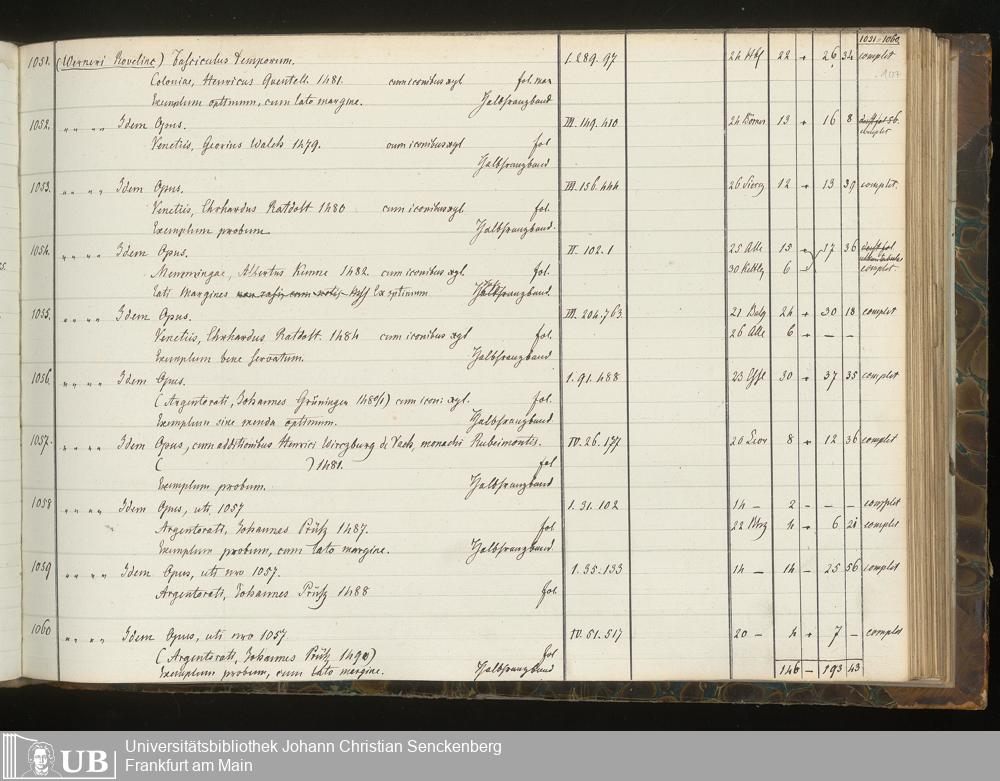 1051-1060.
1051. (Werneri Rovelinc) Fasciculus temporum. I. 289. 97 24 22 26 34 complet
Coloniae, Henricus Quentell. 1481. cum iconibus xyl fol. max
Exemplum optimum, cum lato margine. Halbfranzband
1052. „ „ „ „ Idem Opus. III. 149. 410 24 13 16 8
Venetiis, Georius Walch 1479. cum iconibus xyl fol complet
Halbfranzband
1053. „ „ „ „ Idem Opus. III. 156. 444 26 12 13 39 complet.
Venetiis, Ehrhardus Ratdolt 1480 cum iconibus xyl fol.
Exemplum probum. Halbfranzband.
1054. „ „ „ „ Idem Opus. II. 102. 1 25 15 17 36
Memmingae, Albertus Kunne 1482. cum iconibus xyl. fol. 30 6 complet.
Lati Margines Ex optimum Halbfranzband.
1055. „ „ „ „ Idem Opus. III. 204. 763 21 24 30 18 complet
Venetiis, Ehrhardus Ratdolt. 1484 cum iconibus xyl fol. 26 6 — —
Exemplum bene servatum. Halbfranzband
1056. „ „ „ „ Idem Opus. I. 91. 488 23 30 37 35 complet
(Argentorati, Johannes Grüninger cum icon: xyl. fol.
Exemplum sine menda optimum. Halbfranzband.
1057. „ „ „ „ Idem Opus, cum additionibus Henrici Wirczburg de Vach, monachi Rubeimontis. IV. 26. 177 20 8 12 36 complet
( ) 1481. fol
Exemplum probum. Halbfranzband
1058 „ „ „ „ Idem Opus, uti 1057 I. 31. 102 14 — 2 - — — complet
Argentorati, Johannes Prüß 1487. fol 22 4 6 21 complet
Exemplum probum, cum lato margine. Halbfranzband.
1059 „ „ „ „ Idem Opus, uti nro 1057. I. 35. 133 14 — 14 - 25 56 complet
Argentorati, Johannes Prüß 1488 fol.
1060 „ „ „ „ Idem Opus, uti nro 1057. IV. 51. 517 20 — 4 7 — complet
(Argentorati, Johannes Prüß fol
Exemplum probum, cum lato margine. Halbfranzband 146 — 193 43
UB
Universitätsbibliothek Johann Christian Senckenberg
Frankfurt am Main